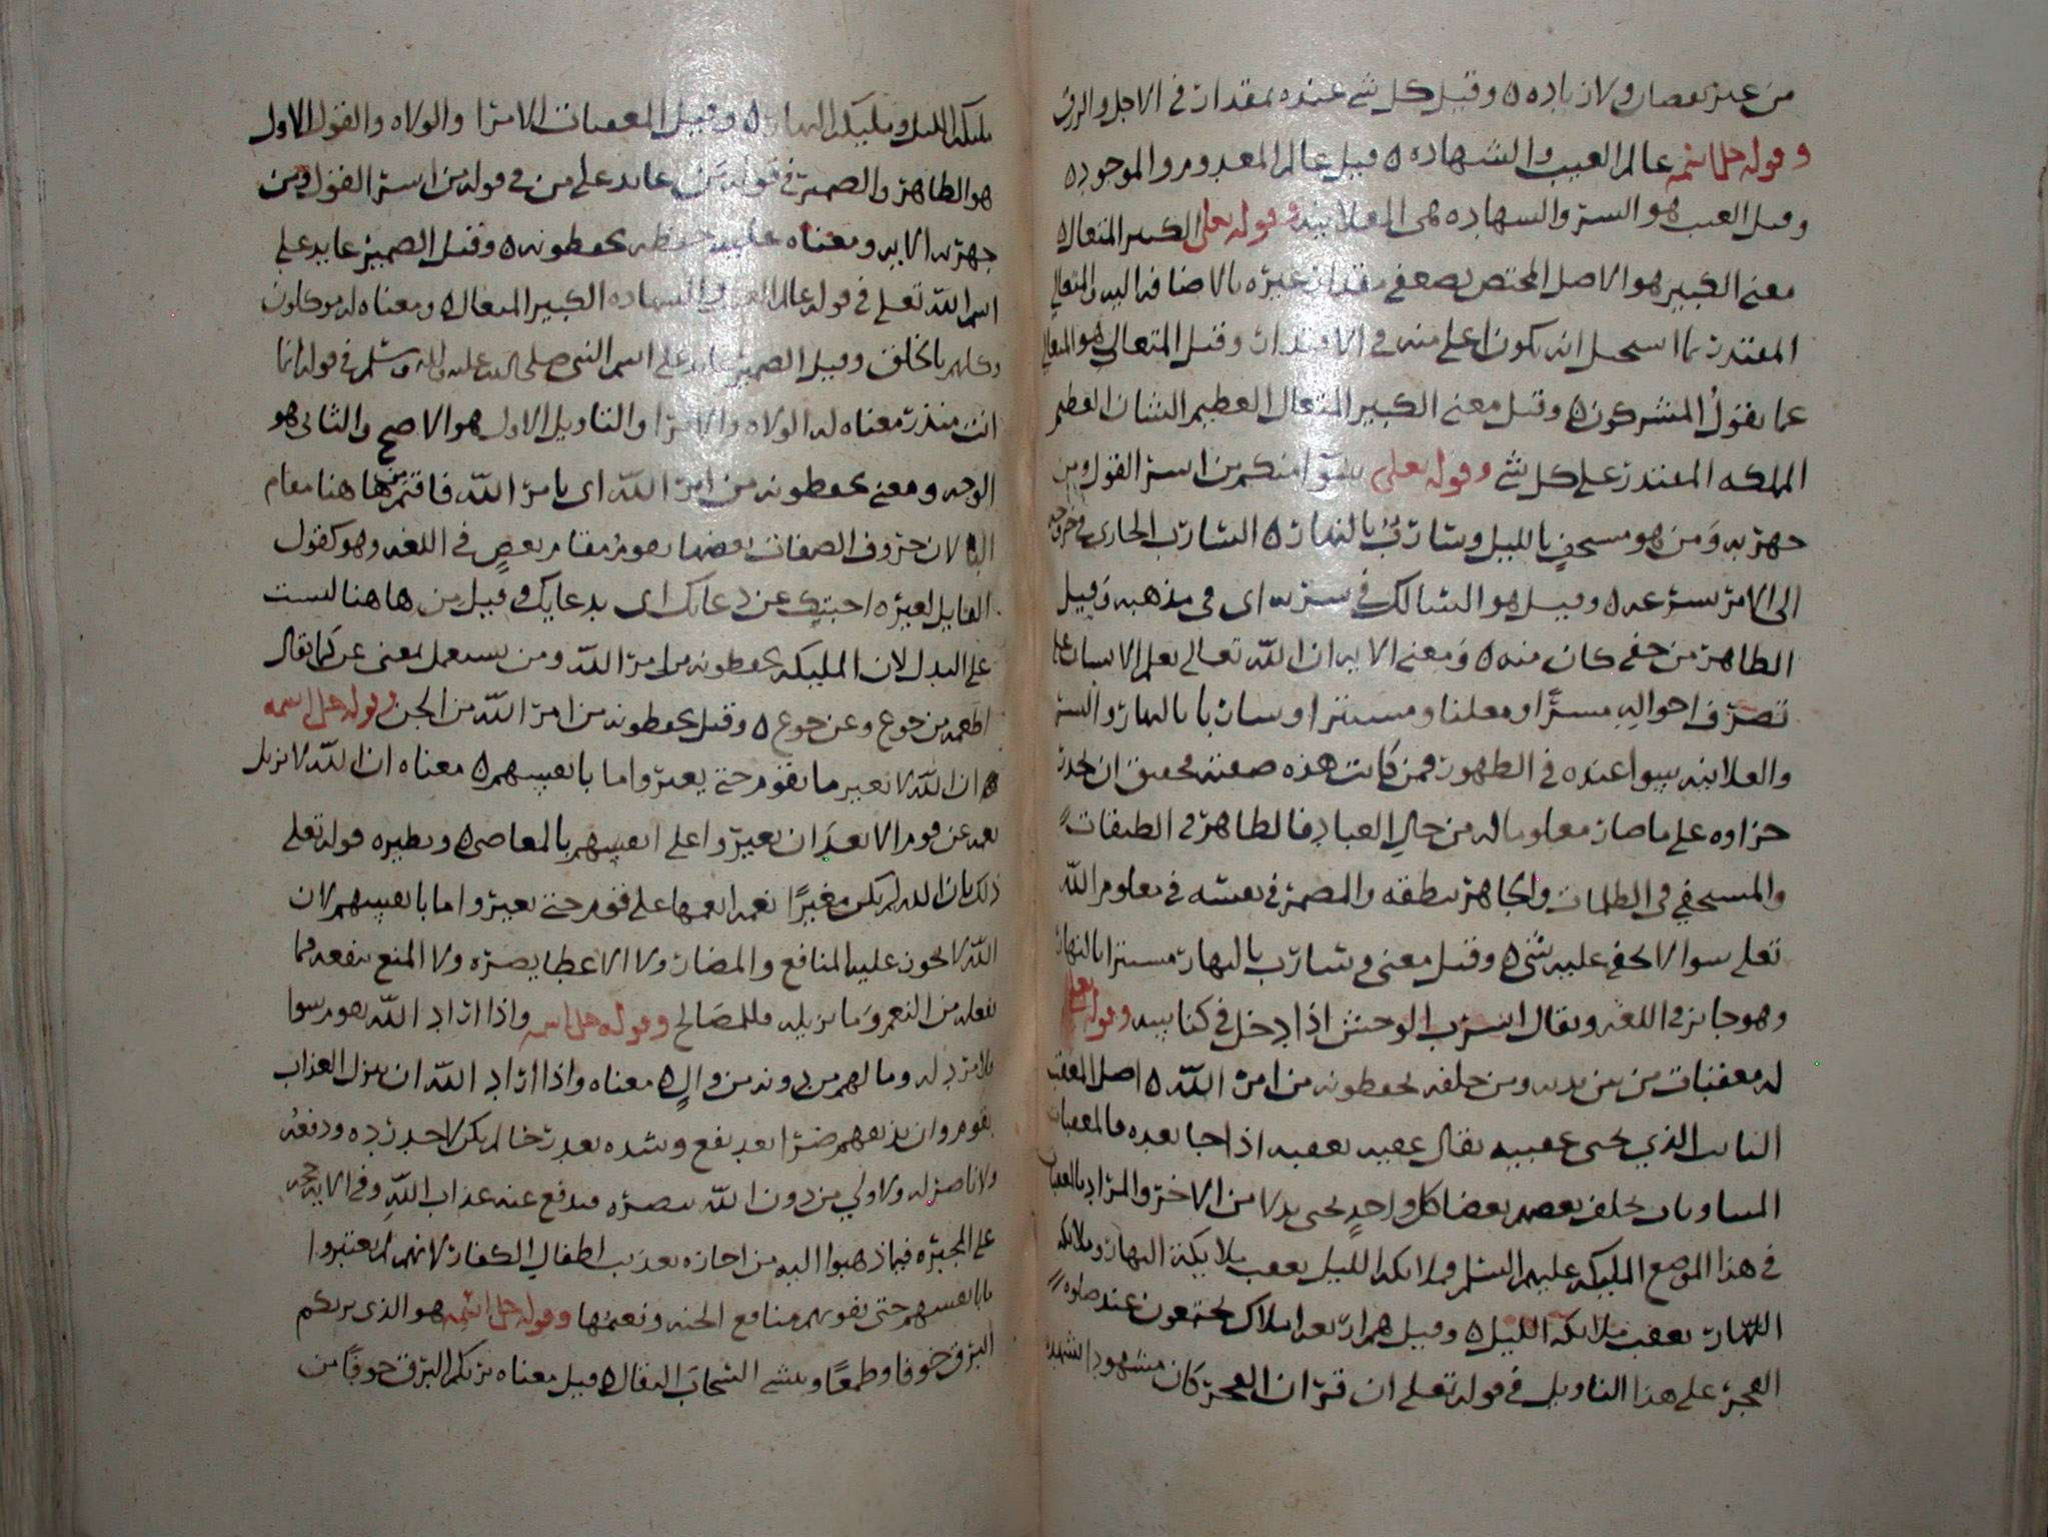 من غير نقصان ولا زياده ٥ وقيل كل شي عنده بمقدار في الاجل والرزق
وقوله جل اسمه عالم الغيب والشهاده ٥ قيل عالم المعدوم والموجود ٥
وقيل الغيب هو السر والشهاده هي العلانيه وقوله تعلى الكبير المتعال ٥
معنى الكبير هو الاصل المختص بصغر مقدار غيره بالاضافه اليه والمتعالي
المقتدر بما استحيل انه يكون اعلى منه في الاقتدار وقيل المتعالي هو المتعالي
عما يقول المشركون ٥ وقيل معنى الكبير المتعال العظيم الشان العظيم
المملكه المقتدر على كل شي وقوله تعلى سوا منكم من اسر القول ومن
جهر به ومن هو مستخفٍ بالليل وساربٌ بالنهار ٥ السارب الجاري في خروجه
الى الامر بسرعه ٥ وقيل هو السالك في سربه اى في مذهبه وقيل
الظاهر من خفي كان منه ٥ ومعنى الايه ان الله تعالى يعلم الانسان على
تصرف احواله مسرًّا ومعلنا ومستترا وساربا بالنهار والسر
والعلانيه سوا عنده في الظهور فمن كانت هذه صفته فحقيق ان يحذر
جزاوه على ما صار معلوما له من حال العباد فالظاهر في الطرقات
والمستخفي في الظلمات والجاهر بنطقه والمضمر في نفسه في معلوم الله
تعلى سوا لا يخفى عليه شي ٥ وقيل معنى وسارب بالنهار مستترا بالنهار
وهو جايز في اللغه ويقال انسرب الوحش اذا دخل في كناسه وقوله تعلى
له معقبات من بين يديه ومن خلفه يحفظونه من امر الله ٥ اصل المعقب
النايب الذي يجى عقبيه يقال عقبه يعقبه اذا جا بعده فالمعقبات
المتناوبات يخلف بعضهم بعضا كل واحدٍ يجى بدلا من الاخر والمراد بالمعقبات
في هذا الموضع المليكه عليهم السلم فملائكه الليل يعقب ملايكة النهار وملايكه
النهار يعقب ملائكه الليل ٥ وقيل هم اربعه املاك يجتمعون عند صلوه
الفجر على هذا التاويل في قوله تعلى ان قران الفجر كان مشهودا تشهده
مليكه الليل ومليكه النهار ٥ وقيل المعقبات الامرا والولاه والقول الاول
هو الظاهر والضمير في قوله عايد على من في قوله من اسر القول ومن
جهر به الايه ومعناه يحفظونه ٥ وقيل الضمير عايد على
اسم الله تعلى في قوله عالم الغيب والشهاده الكبير المتعال ٥ ومعناه له موكلون
وكلهم بالخلق وقيل الضمير عايد على اسم النبي صلى الله عليه واله وسلم في قوله انما
انت منذر معناه له الولاه والامرا والتاويل الاول هو الاصح والثاني هو
الوجه ومعنى يحفظونه من امر الله اى بامر الله فاقتمر من ها هنا مقام
البا لان حروف الصفات بعضها يقوم مقام بعضٍ في اللغه وهو كقول
القايل لغيره اجبتك عن دعايك اى بدعايك وقيل من ها هنا ليست
على البدل لان المليكه يحفظونه من امر الله ومن يستعمل بمعنى عن كما يقال
اطعمه من جوع وعن جوع ٥ وقيل يحفظونه من امر الله من الجن وقوله جل اسمه
٥ ان الله لا يغير ما بقوم حتى يغيروا ما بانفسهم ٥ معناه ان الله لا يزيل
نعمه عن قوم الا بعد ان يغيروا على انفسهم بالمعاصي ٥ ونظيره قوله تعلى
ذلك بان الله لم يكن مغيرًا نعمه انعمها على قوم حتى يغيروا ما بانفسهم لان
الله لا يجوز عليه المنافع والمضار ولا الاعطا يضره ولا المنع ينفعه فما
يفعله من النعم وما يزيله فللمصالح وقوله جل اسمه واذا اراد الله بقوم سوا
فلا مرد له وما لهم من دونه من والٍ ٥ معناه واذا اراد الله ان ينزل العذاب
بقوم وان يذيقهم ضرا بعد نفع وشده بعد رخا لم يكن لاحد رده ودفعه
ولا ناصر له ولا ولي من دون الله ينصره فيدفع عنه عذاب الله وفي الايه حجه
على المجبره فيما ذهبوا اليه من اجازه تعذيب اطفال الكفار لانهم لم يغيروا
ما بانفسهم حتى يفوتهم منافع الجنه ونعيمها وقوله جل اسمه هو الذي يريكم
البرق خوفا وطمعًا وينشي السحاب الثقال ٥ قيل معناه يريكم البرق خوفًا من